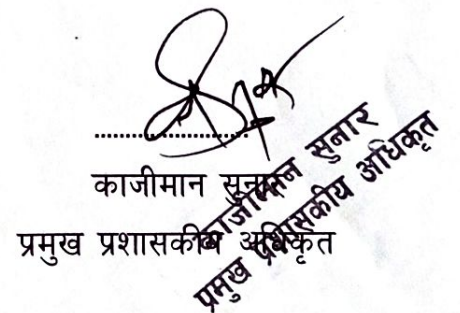 ....................
काजीमान सुनार
प्रमुख प्रशासकीय अधिकृत
काजीमान सुनार
प्रमुख प्रशासकीय अधिकृत